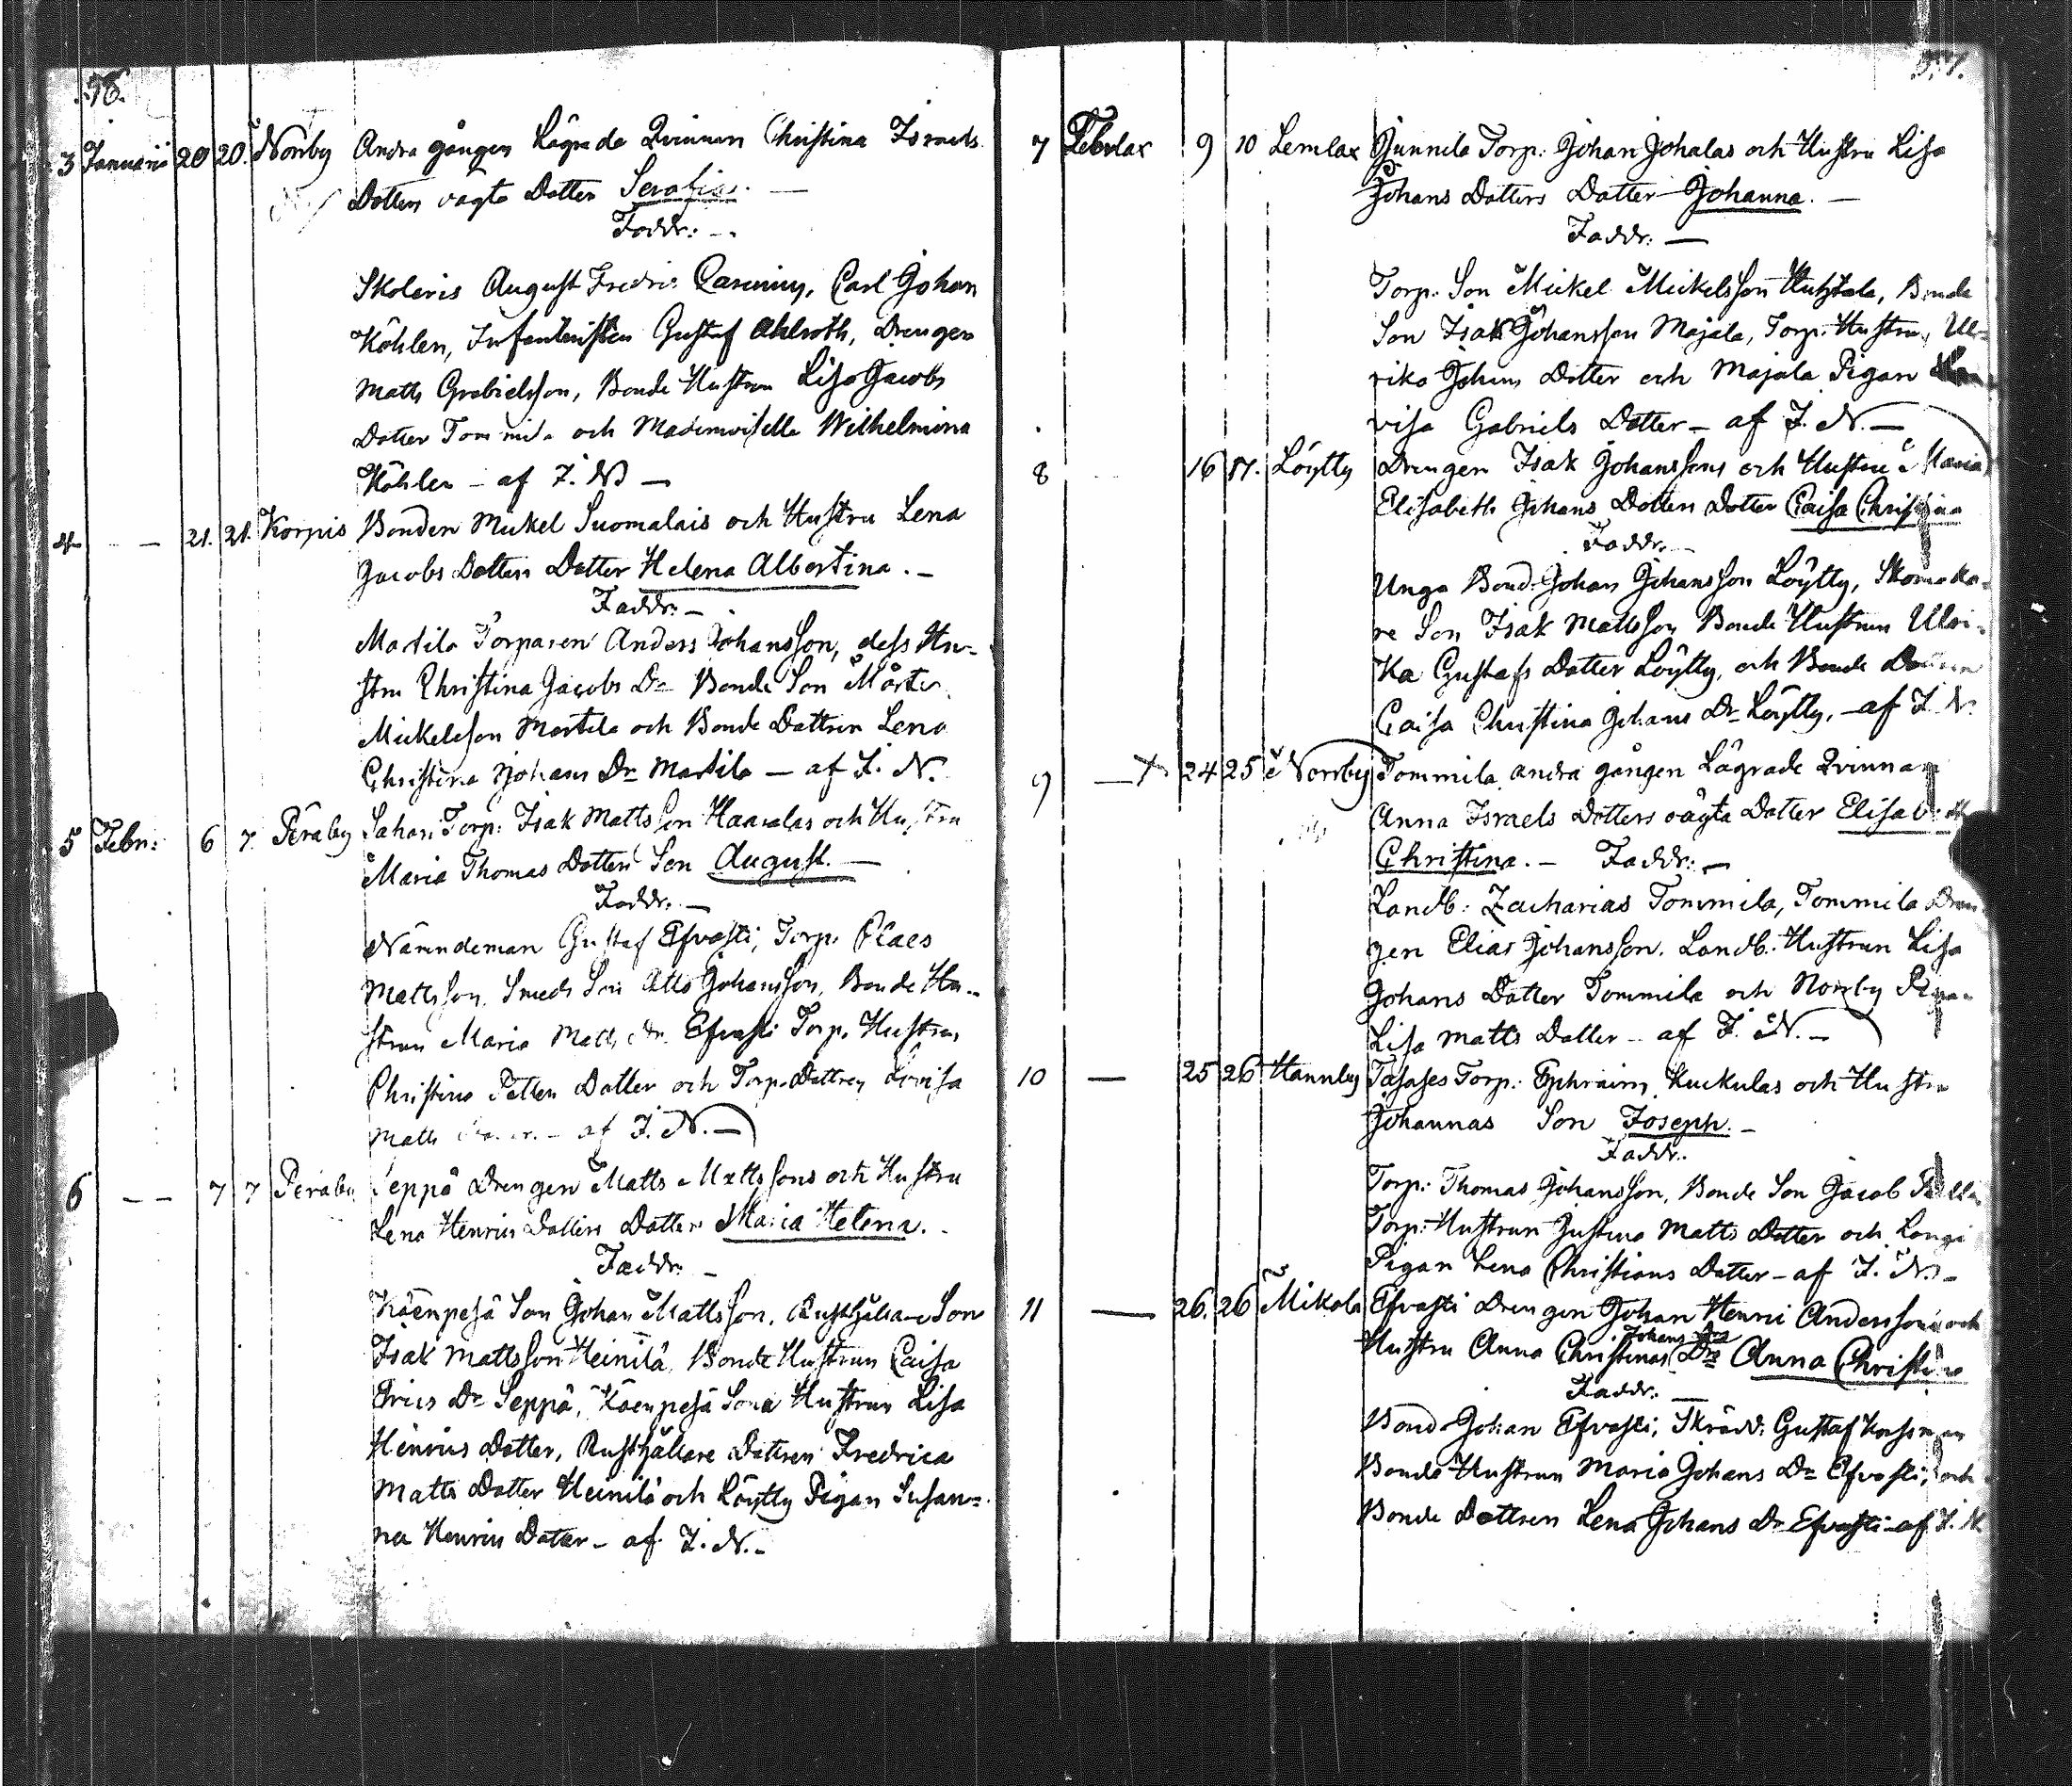 56.
3 Januarii 20 20. Norrby Andra gången Lägrade Qvinnan Christina Israels
Dotters oägta Dotter Serafia. —
Faddr: —
Skolaris August Fredric, Carl Johan
Köhler, Infanteristen Gustaf Ahlroth, Drengen
Matts Grabielsson, Bonde Hustrun Lisa Jacobs
Dotter Tommila och Mademoiselle Wilhelmina
Köhler — af J. N. —
4 — — 21. 21. Korpis Bonden Mickel Suomalais och Hustru Lena
Jacobs Dotters Dotter Helena Albertina. —
Faddr: —
Martila Torparen Anders Johansson, dess Hu-
stru Christina Jacobs Dr Bonde Son Mårten
Mickelsson Martila och Bonde Dottren Lena
Christina Johans Dr Martila — af J. N.
5 Febr: 6 7. Peraby Sahari Torp: Isak Mattsson Haavalas och Hustru
Maria Thomas Dotters Son August. —
Faddr. —
Nämndeman Gustaf Efvasti, Torp: Claes
Mattsson, Smeds Son Atto Johansson, Bonde Hu-
strun Maria Matts Dr Efvasti Torp. Hustrun
Christina Petters Dotter och Torp. Dottren Lovisa
Matts — af J. N. —
6 — — 7 7 Peraby Seppä Drengen Matts Mattssons och Hustru
Lena Henrics Dotters Dotter Maria Helena. —
Faddr: —
Käenpesä Son Johan Mattsson, Rusthållare Son
Isak Mattsson Heinilä, Bonde Hustrun Caisa
Erics Dr Seppä, Käenpesä Sona Hustrun Lisa
Henrics Dotter, Rusthållare Dottren Fredrica
Matts Dotter Heinilä och Löytty Pigan Susan-
na Henrics Dotter — af J. N. —
57.
7 Februar 9 10 Lemlax Junnila Torp: Johan Johalas och Hustru Lisa
Johans Dotters Dotter Johanna. —
Faddr: —
Torp: Son Mickel Mickelsson Huhtala, Bonde
Son Isak Johansson Majala, Torp. Hustrun Ul-
rika Johans Dotter och Majala Pigan
visa Gabriels Dotter — af J. N. —
8 16 17. Löytty Drengen Isak Johanssons och Hustru Maria
Elisabeth Johans Dotters Dotter Caisa Christina
Faddr. —
Unga Bond. Johan Johansson Löytty, Skomaka-
re Son Isak Mattsson Bonde Hustrun Ulri-
ka Gustafs Dotter Löytty, och Bonde Dottren
Caisa Christina Johans Dr Löytty, — af J. N.
9 — 24 25 Norrby Tommila andra gången Lägrade Qvinnan
Anna Israels Dotters oägta Dotter Elisabeth
Christina. — Faddr: —
Landb: Zacharias Tommila, Tommila Dren-
gen Elias Johansson. Landb. Hustrun Lisa
Johans Dotter Tommila och Norrby Pigan
Lisa Matts Dotter — af J. N. —
10 — 25 26 Hannby Torp: Ephraim Kuckulas och Hustru
Johannas Son Joseph. —
Faddr:
Torp: Thomas Johansson, Bonde Son Jacob
Torp: Hustrun Justina Matts Dotter och Langi
Pigan Lena Christians Dotter — af J. N. —
11 — 26. 26 Mikola Efvasti Drengen Johan Henric Anderssons och
Hustru Anna Christinas Johans Dra Dr Anna Christina
Faddr: —
Bond Johan Efvasti, Skrädd: Gustaf
Bonde Hustrun Maria Johans Dr Efvasti, och
Bonde Dottren Lena Johans Dr Efvasti — af J. N.